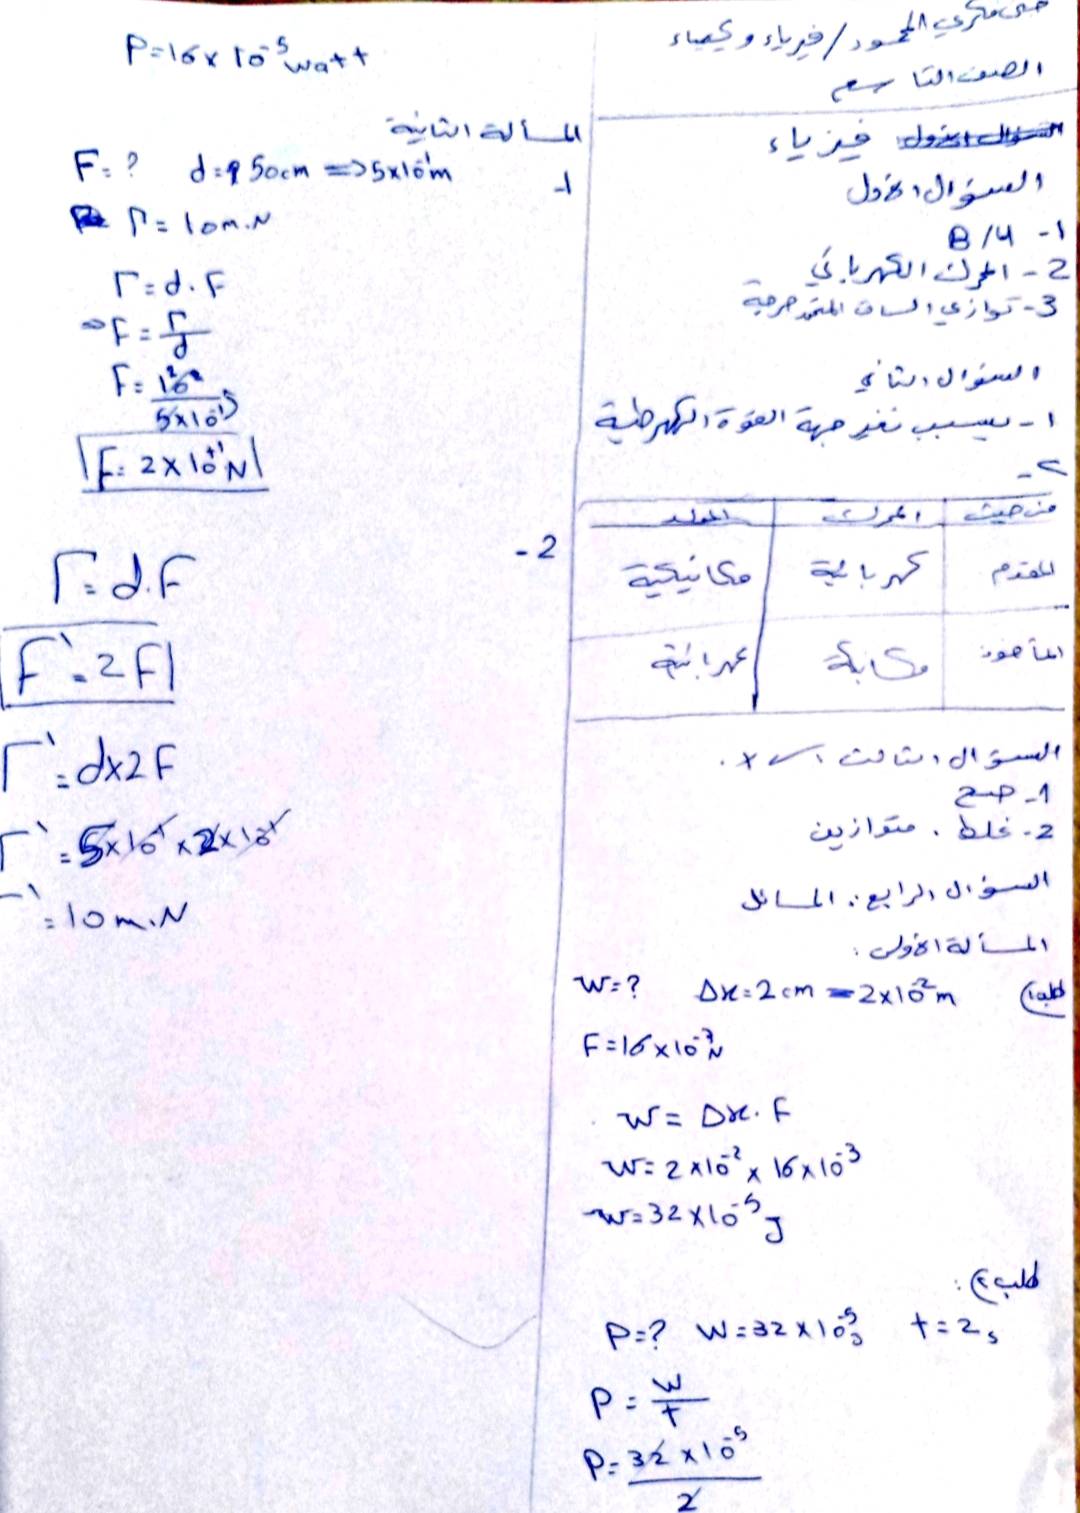 فكري المحمود / فيزياء وكيمياء
الصف التاسع
السؤال الأول فيزياء
السؤال الأول
1- B/4
2- المحرك الكهربائي
3- توازي الساق المتدحرجة
السؤال الثاني
1- بسبب تغير جهة القوة الكهرطيسية
2-
من حيث المحرك المولد
المقدم كهربائية ميكانيكية
المأخوذ
السؤال الثالث ✓ ×.
1- صح
2- غلط . متوازيين
السؤال الرابع: المسائل
المسألة الأولى:
طلب1) Δx=2cm = 2×10⁻²m W=?
F=16×10⁻³N
W= Δx. F
W= 2×10⁻² × 16×10⁻³
W=32×10⁻⁵J
طلب2):
P=? W=32×10⁻⁵J t=2s
P= W/t
P= 32×10⁻⁵/2
P=16×10⁻⁵watt
المسألة الثانية
1- F=? d=50cm => 5×10⁻¹m
Γ= 10m.N
Γ=d.F
=> F= Γ/d
F= 10/5×10⁻¹
F= 2×10⁺¹N
2- Γ=d.F
F'=2F
Γ'=dx2F
Γ'=5×10⁻¹×2×10¹
Γ'=10m.N